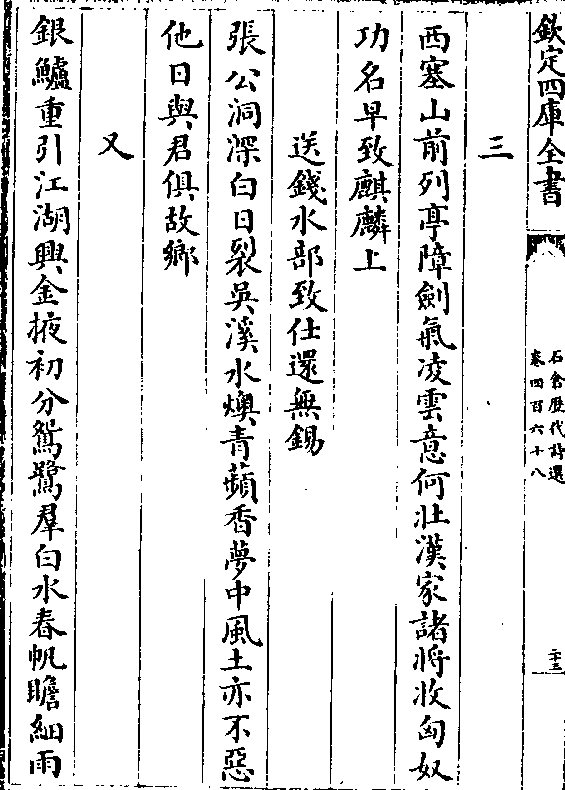 欽定四庫全書
石倉歴代詩選
卷四百六十八
二十三
三
西塞山前列亭障劍氣凌雲意何壯漢家諸將收匈奴
功名早致麒麟上
送錢水部致仕還無錫
張公洞深白日裂吳溪水燠青蘋香夢中風土亦不惡
他日與君俱故鄉
又
銀鱸重引江湖興金掖初分鴛鷺羣白水春帆瞻細雨